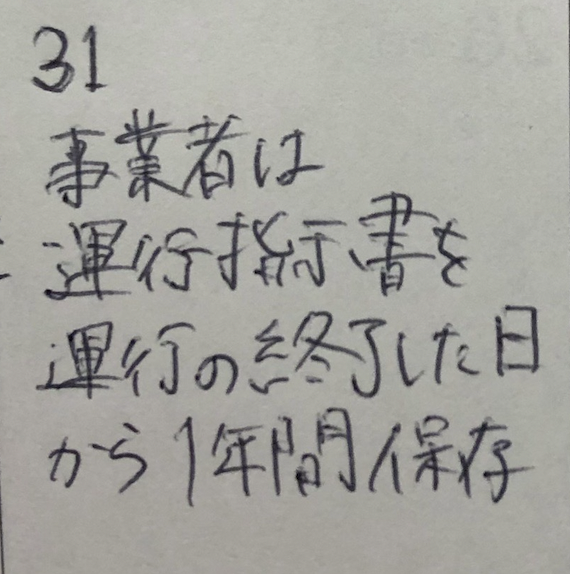 31
事業者は
運行指示書を
運行の終了した日
から1年間保存